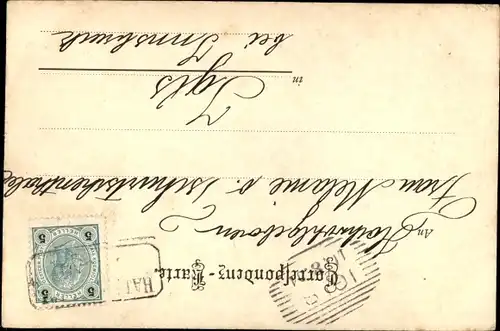 Correspondenz-Karte.
An Hochwohlgeboren
Frau Melanie v. Tschurtschenthaler
in Igls
bei Innsbruck
5 5
5 5
HALL